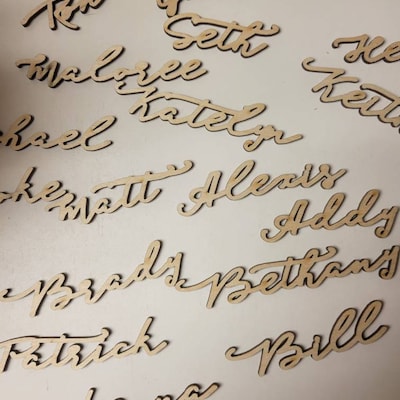 Seth
Maloree
Katelyn
Keith
Matt
Alexis
Addy
Brady
Bethany
Patrick
Bill